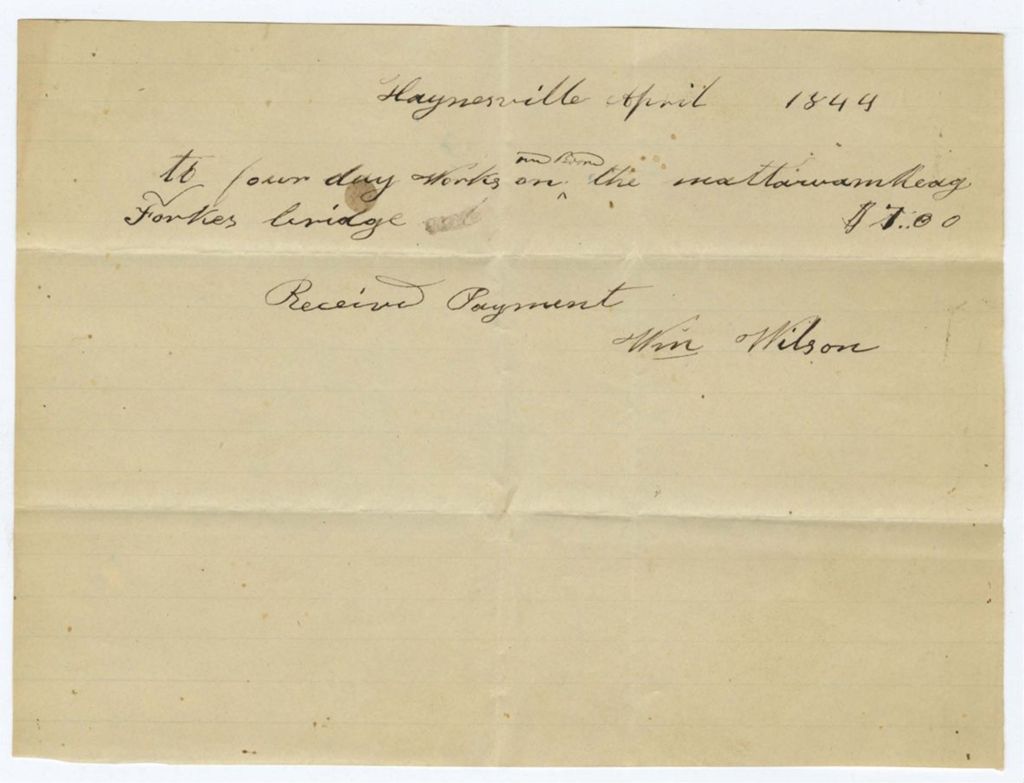 Haynesville April 1844
to four day Works on the mattawamkeag
Forkes bridge $7.00
Received Payment
Wm Wilson